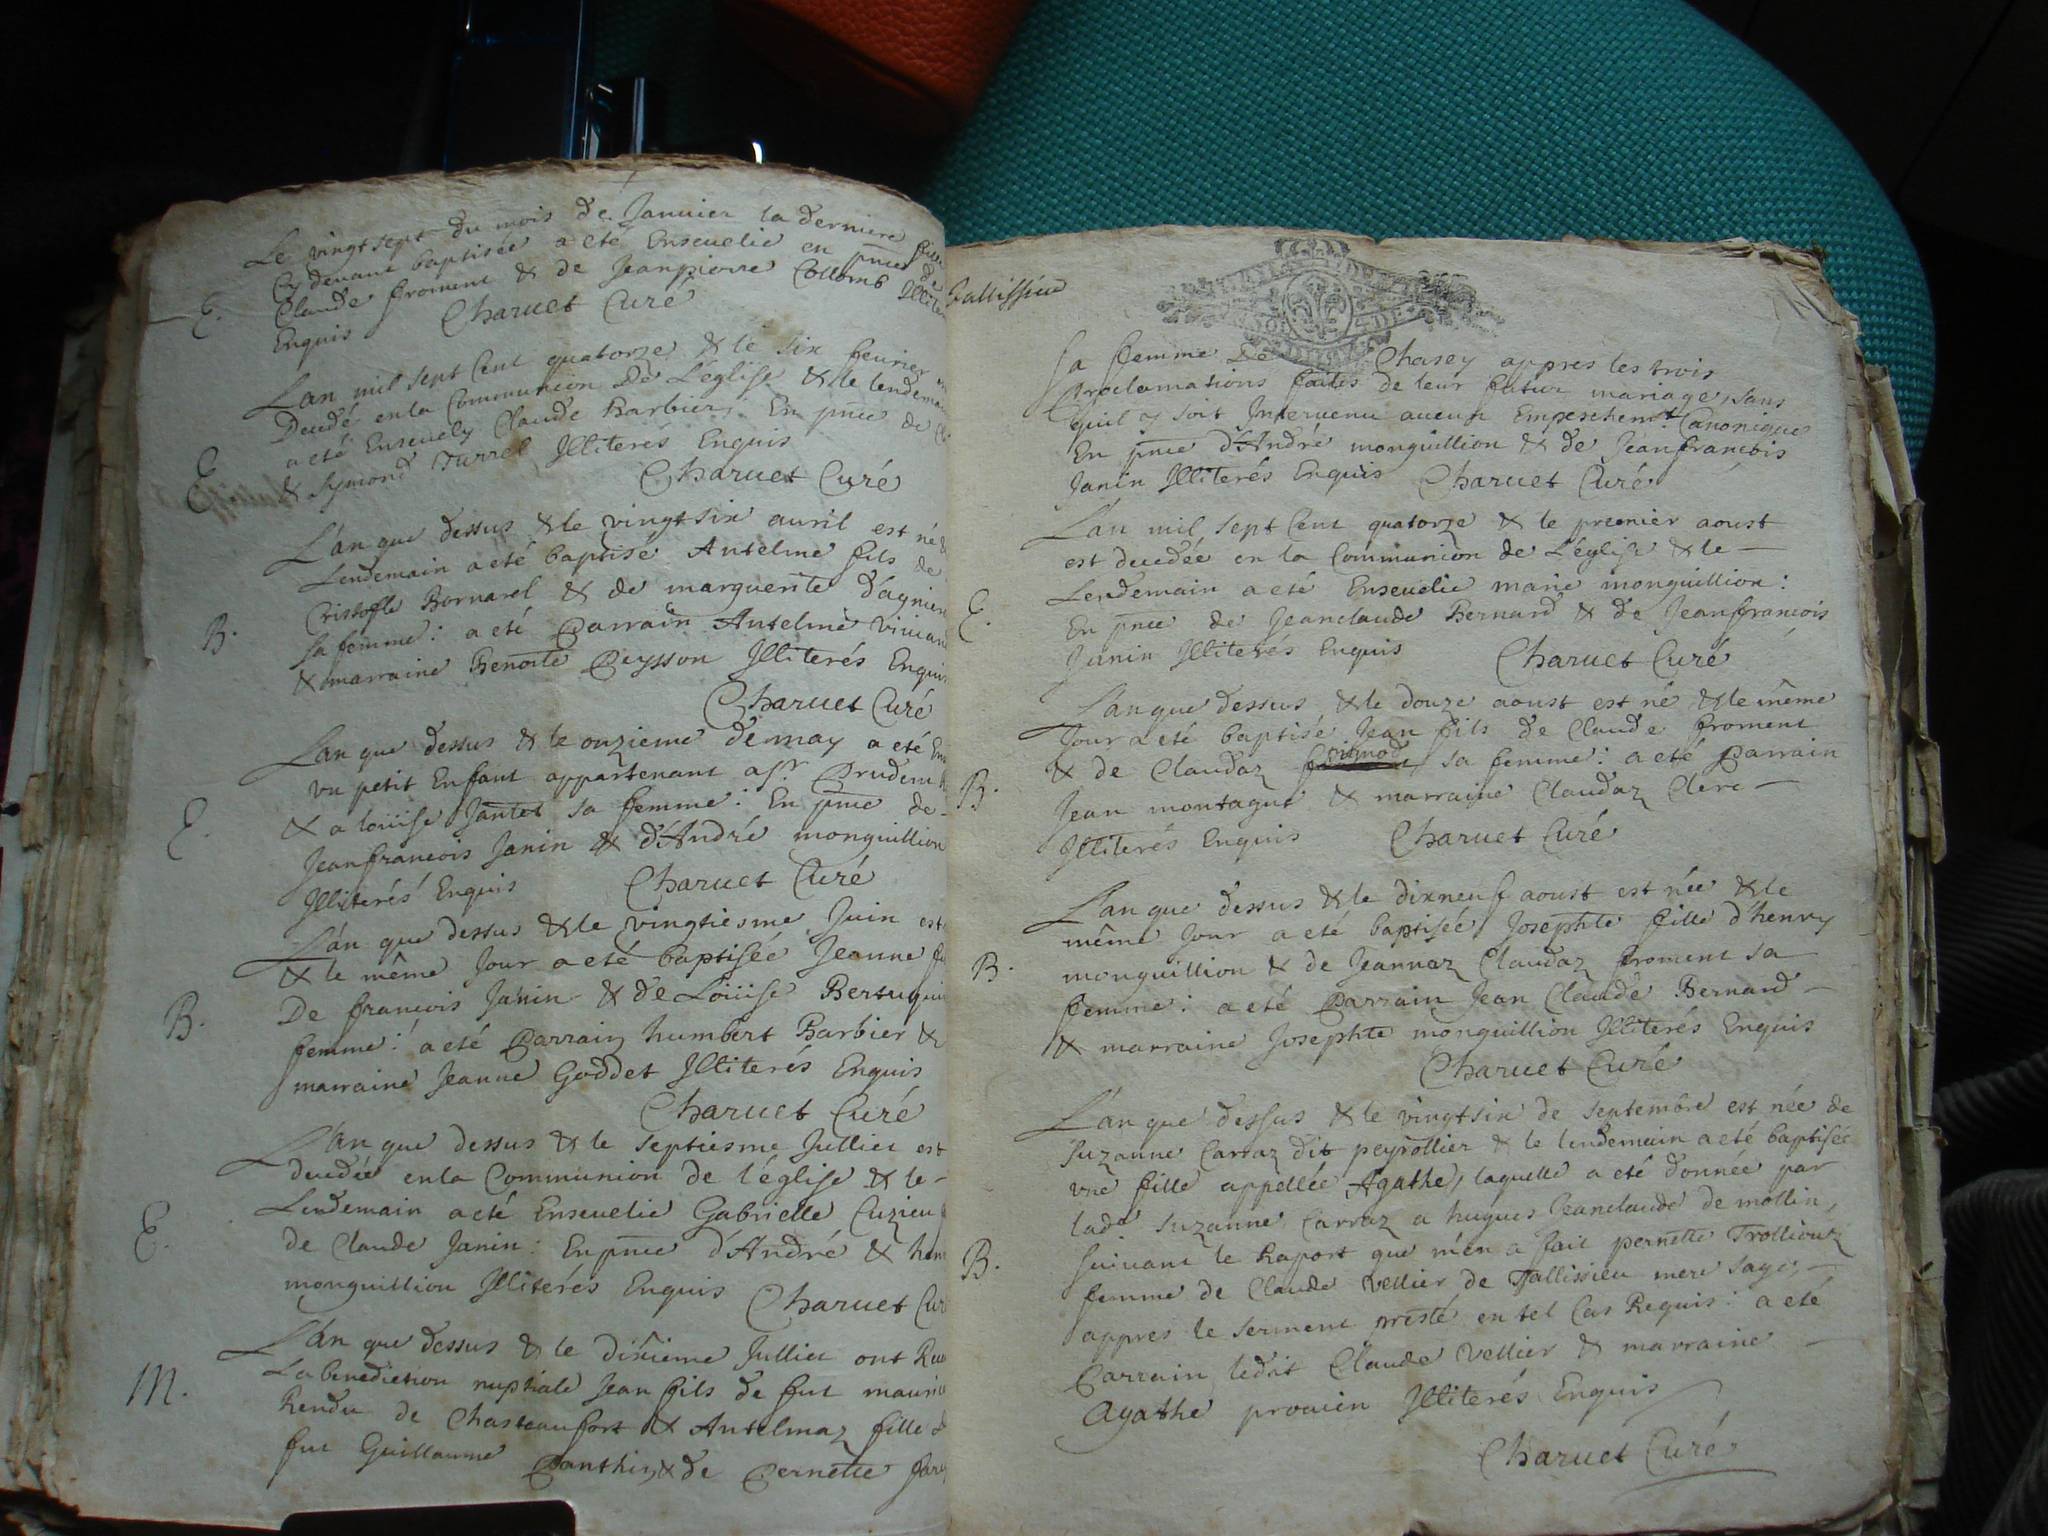 Le vingtsept du mois de Januier la derniere
Cy deuant baptisée a eté Enseuelie en pñce de
Claude froment & de Jeanpierre Collomb Illite
Enquis Charuet Curé
E.
Lan mil sept Cent quatorze & le six feurier
Decedé en la Communion De L'eglise & le lendemai
a eté Enseuely Claude Barbier: En pñce de
& Symond Turrel Illiterés Enquis
E.
Charuet Curé
L'an que dessus & le vingtsix auril est né &
Lendemain a eté baptisé Antelme fils de
Cristofle Bornarel & de marguerite d'agnien
B.
sa femme: a eté Parrain Antelme viuian
& marraine Benoite Peysson Illiterés Enquis
Charuet Curé
Lan que dessus & le onzieme de may a eté
vn petit Enfant appartenant a sr. Prudent
E.
& a loüise Jantet sa femme: En pñce de
Jeanfrancois Janin & d'André monguillion
Illiterés Enquis Charuet Curé
L'an que dessus & le vingtiesme Juin est
& le même Jour a eté baptisée Jeanne
De francois Janin & de Loüise Bertuqui
B.
femme: a eté Parrain humbert Barbier &
marraine Jeanne Goddet Illiterés Enquis
Charuet Curé
L'an que dessus & le septiesme Jullict est
decedée en la Communion de l'église & le
Lendemain a eté Enseuelie Gabrielle Cuzieu
E.
de Claude Janin: En pñce d'André & hen
monguillion Illiterés Enquis Charuet Cur
L'an que dessus & le dixieme Julliet ont Rec
La benediction nuptiale Jean fils de fut mauri
M.
Rendu de Chasteaufort & Antelmaz fille d
fut Guillaume Panthin, & de Pernette Jar
Tallissieu
sa femme De Chasey appres les trois
Proclamations faites de leur futur mariage, sans
quil y soit Interuenu aucun Empeschemt. Canonique
En pñce d'André monguillion & de Jeanfrancois
Janin Illiterés Enquis Charuet Curé
L'an mil sept Cent quatorze & le premier aoust
est decedée en la Communion de L'église & le
Lendemain a eté Enseuelie marie monguillion:
E.
En pñce de Jeanclaude Bernard & de Jeanfrancois
Janin Illiterés Enquis Charuet Curé
Lan que dessus & le douze aoust est né & le même
Jour a eté baptisé Jean fils de Claude froment
& de Claudaz sa femme: a eté Parrain
B.
Jean montagut & marraine Claudaz Clerc
Illiterés Enquis Charuet Curé
L'an que dessus & le dixneuf aoust est née & le
même Jour a eté baptisée Josephte fille d'henry
B.
monguillion & de Jeannaz Claudaz froment sa
femme: a eté Parrain Jean Claude Bernard
& marraine Josephte monguillion Illiterés Enquis
Charuet Curé
L'an que dessus & le vingtsix de septembre est née de
Suzanne Carraz dit peyrollier & le lendemain a eté baptisée
vne fille appellée Agathe, laquelle a eté donnée par
lade. Suzanne Carraz a hugues Jeanclaude de mollin,
B.
suiuant le Raport que m'en a fait pernette Trolliouz
femme de Claude Vellier de Tallissieu mere sage,
appres le serment presté en tel Cas Requis: a eté
Parrain ledit Claude Vellier & marraine
Agathe prouien Illiterés Enquis
Charuet Curé